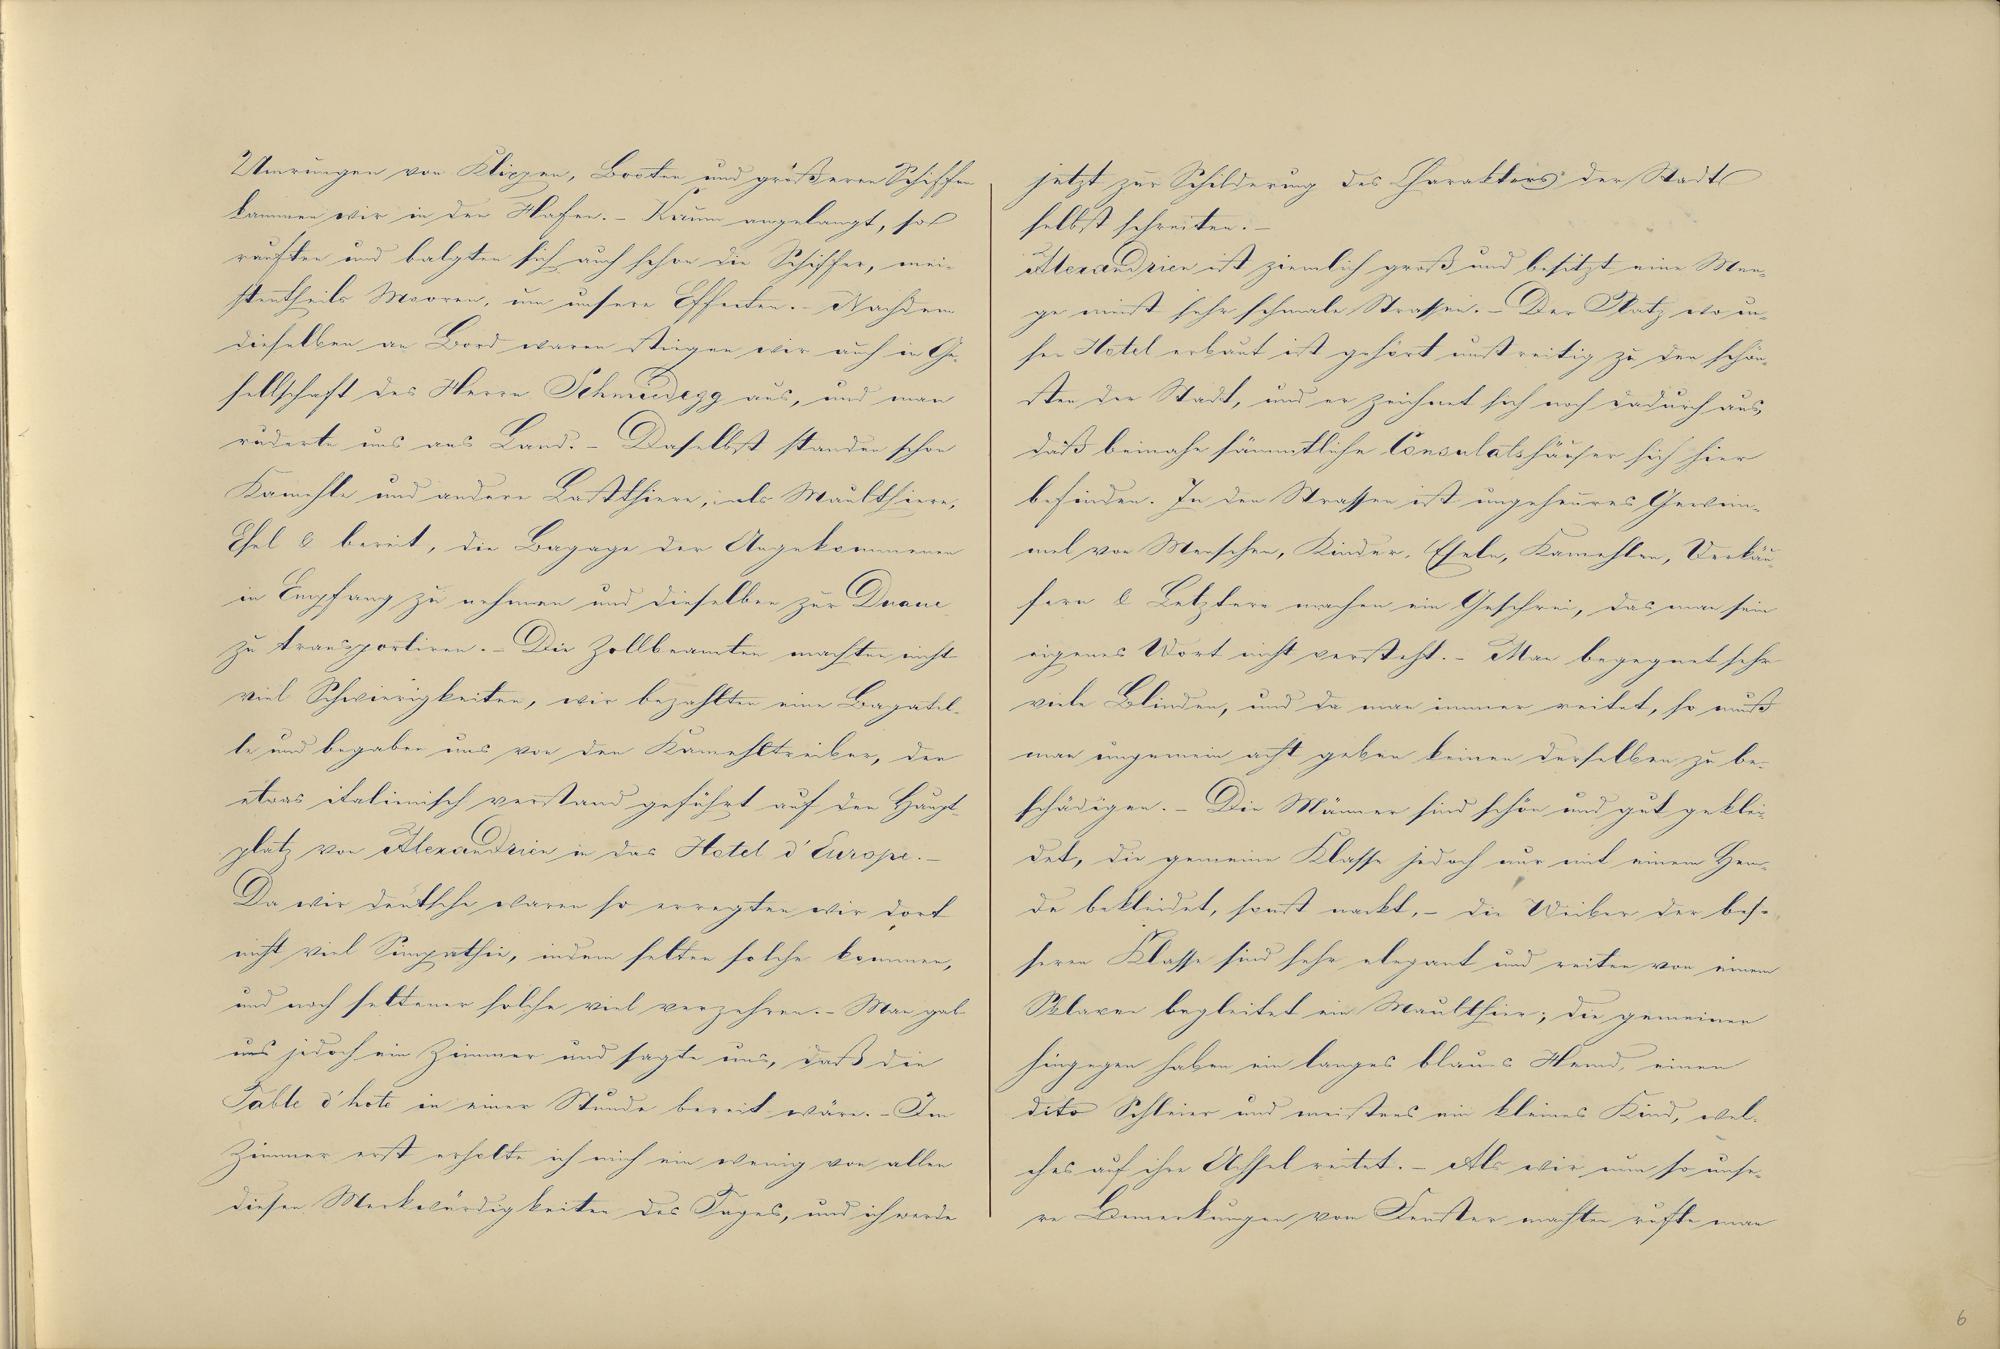 Umrungen von Klippen, Booten und größeren Schiffen
kammen wir in den Hafen. – Kaum angelangt, so
rauften und balgten sich auch schon die Schiffer, mei-
stentheils Mooren, um unsere Effecten. – Nachdem
dieselben an Bord waren stiegen wir auch in Ge-
sellschaft des Herrn Schmiedegg aus, und man
ruderte uns ans Land. – Daselbst standen schon
Kamehle und andere Lastthiere, als Maulthiere,
Esel & bereit, die Bagage der Angekommenen
in Empfang zu nehmen und dieselben zur Duane
zu transportiren. – Die Zollbeamten machten nicht
viel Schwierigkeiten, wir bezahlten eine Bagatel-
le und begaben uns von den Kamehltreiber, der
etwas italienisch verstand geführt auf den Haupt-
platz von Alexandrien in das Hotel d'Europe. –
Da wir deutsche waren so erregten wir dort
nicht viel Simpathie, indem selten solche kommen,
und noch seltener solche viel verzehren. – Man gab
uns jedoch ein Zimmer und sagte uns, daß die
Table d'hote in einer Stunde bereit wäre. – Im
Zimmer erst erholte ich mich ein wenig von allen
diesen Merkwürdigkeiten des Tages, und ich werde
jetzt zur Schilderung des Charakters der Stadt
selbst schreiten. –
Alexandrien ist ziemlich groß und besitzt eine Men-
ge meist sehr schmale Strassen. – Der Platz wo un-
ser Hotel erbaut ist gehört unstreitig zu den schön-
sten der Stadt, und er zeichnet sich noch dadurch aus,
daß beinahe sämmtliche Consulatshäuser sich hier
befinden. In den Strassen ist ungeheures Gewim-
mel von Menschen, Kinder, Eseln, Kamehlen, Verkäu-
fern & Letztere machen ein Geschrei, das man sein
eigenes Wort nicht versteht. – Man begegnet sehr
viele Blinden, und da man immer reitet, so muß
man ungemein acht geben keinen derselben zu be-
schädigen. – Die Männer sind schön und gut geklei-
det, die gemeine Klasse jedoch nur mit einem Hem-
de bekleidet, sonst nackt, – die Weiber der bes-
seren Klasse sind sehr elegant und reiten von einem
Sklaven begleitet ein Maulthier; die gemeinen
hingegen haben ein langes blaues Hemd, einen
dito Schleier und meistens ein kleines Kind, wel-
ches auf ihre Achsel reitet. – Als wir nun so unse-
re Bemerkungen vom Fenster machten rufte man
6